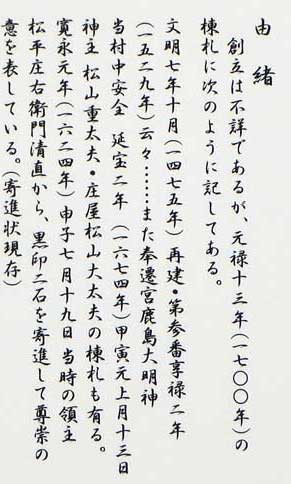 由緒
創立は不詳であるが、元禄十三年(一七〇〇年)の
棟札に次のように記してある。
文明七年十月(一四七五年)再建・第参番享禄二年
(一五二九年)云々……また奉遷宮鹿島大明神
当村中安全 延宝二年(一六七四年)甲寅元上月十三日
神主 松山重太夫・庄屋松山大太夫の棟札も有る。
寛永元年(一六二四年)申子七月十九日 当時の領主
松平庄右衛門清直から、黒印二石を寄進して尊崇の
意を表している。(寄進状現存)